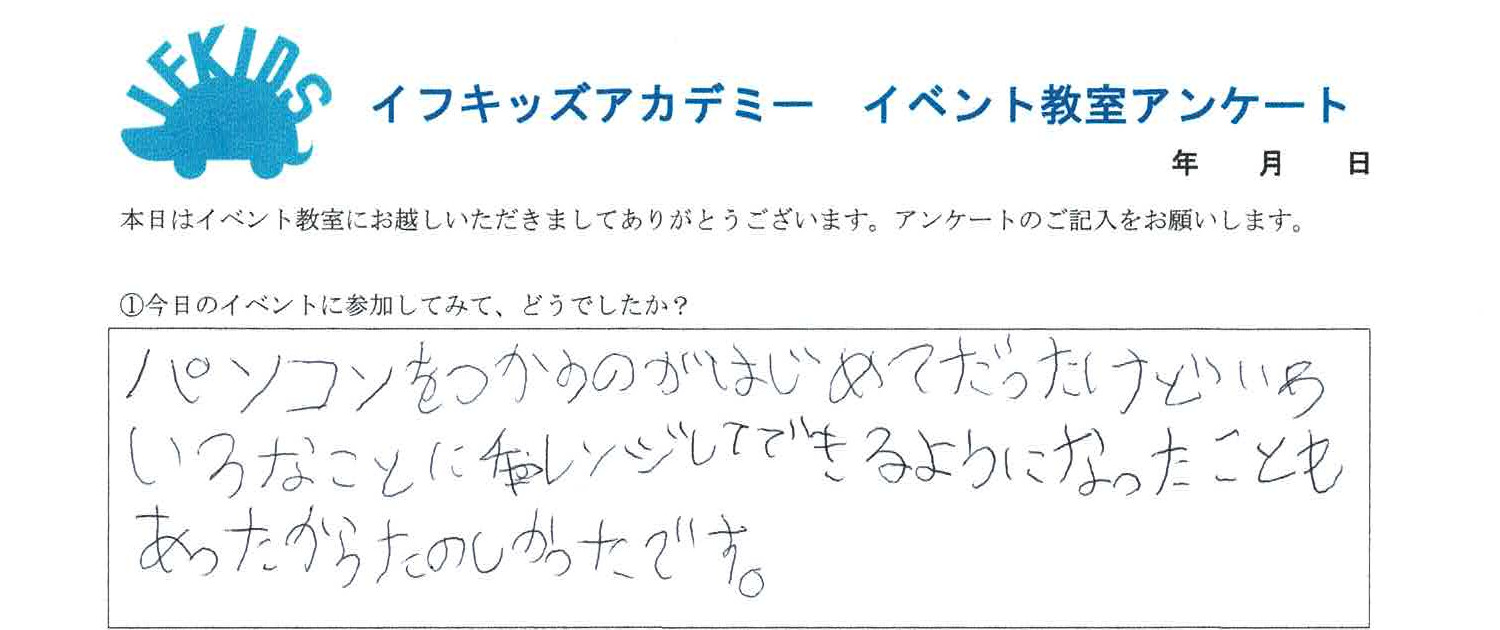 IFKIDS
イフキッズアカデミー イベント教室アンケート
年 月 日
本日はイベント教室にお越しいただきましてありがとうございます。アンケートのご記入をお願いします。
①今日のイベントに参加してみて、どうでしたか？
パソコンをつかうのがはじめてだったけどいろ
いろなことにレンジしてできるようになったことも
あったからたのしかったです。